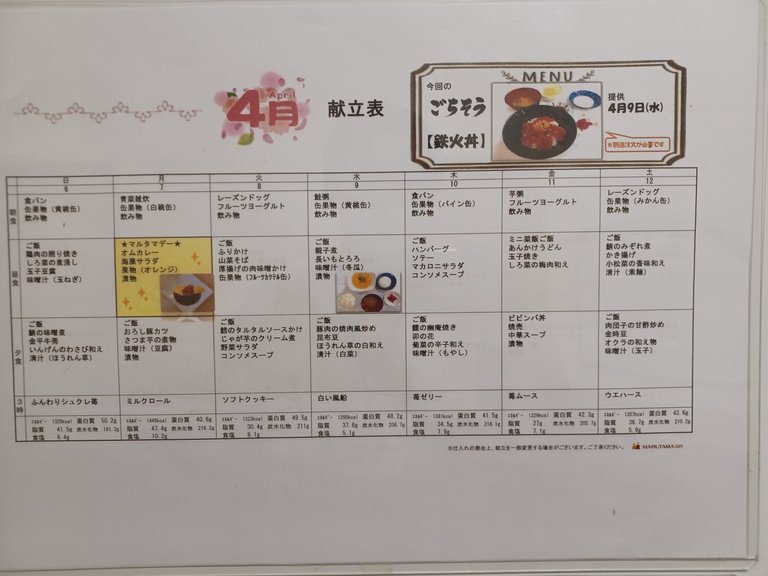 April
4月
献立表
MENU
今回の
ごちそう
【鉄火丼】
提供
4月9日(水)
※別途注文が必要です
日 月 火 水 木 金 土
6 7 8 9 10 11 12
朝食
食パン
缶果物（黄桃缶）
飲み物
青菜雑炊
缶果物（白桃缶）
飲み物
レーズンドッグ
フルーツヨーグルト
飲み物
鮭粥
缶果物（黄桃缶）
飲み物
食パン
缶果物（パイン缶）
飲み物
芋粥
フルーツヨーグルト
飲み物
レーズンドッグ
缶果物（みかん缶）
飲み物
昼食
ご飯
鶏肉の照り焼き
しろ菜の煮浸し
玉子豆腐
味噌汁（玉ねぎ）
★マルタマデー★
オムカレー
海藻サラダ
果物（オレンジ）
漬物
ご飯
ふりかけ
山菜そば
厚揚げの肉味噌かけ
缶果物（フルーツカクテル缶）
ご飯
親子煮
長いもとろろ
味噌汁（冬瓜）
漬物
ご飯
ハンバーグ
ソテー
マカロニサラダ
コンソメスープ
ミニ菜飯ご飯
あんかけうどん
玉子焼き
しろ菜の梅肉和え
ご飯
鯖のみぞれ煮
かき揚げ
小松菜の香味和え
清汁（素麺）
夕食
ご飯
鯖の味噌煮
金平牛蒡
いんげんのわさび和え
清汁（ほうれん草）
ご飯
おろし豚カツ
さつま芋の煮物
味噌汁（豆腐）
漬物
ご飯
鱈のタルタルソースかけ
じゃが芋のクリーム煮
野菜サラダ
コンソメスープ
ご飯
豚肉の焼肉風炒め
昆布豆
ほうれん草の白和え
清汁（白菜）
ご飯
鰆の幽庵焼き
卯の花
菊菜の辛子和え
味噌汁（もやし）
ビビンバ丼
焼売
中華スープ
漬物
ご飯
肉団子の甘酢炒め
金時豆
オクラの和え物
味噌汁（玉子）
3時
ふんわりシュクレ苺
ミルクロール
ソフトクッキー
白い風船
苺ゼリー
苺ムース
ウエハース
蛋白質 50.2g
脂質 41.5g 炭水化物
食塩 6.4g
蛋白質 40.6g
脂質 47.4g 炭水化物
食塩 10.2g
蛋白質 49.5g
脂質 30.4g 炭水化物 211g
食塩 8.1g
蛋白質 48.2g
脂質 37.6g 炭水化物
食塩
蛋白質 41.5g
脂質 34.5g 炭水化物
食塩 7.9g
蛋白質 42.3g
脂質 27g 炭水化物
食塩 7.1g
蛋白質 43.6g
脂質 36.7g 炭水化物 210.2g
食塩 5.9g
※仕入れの都合上、献立を一部変更する場合がございます。ご了承ください。
MARUTAMA